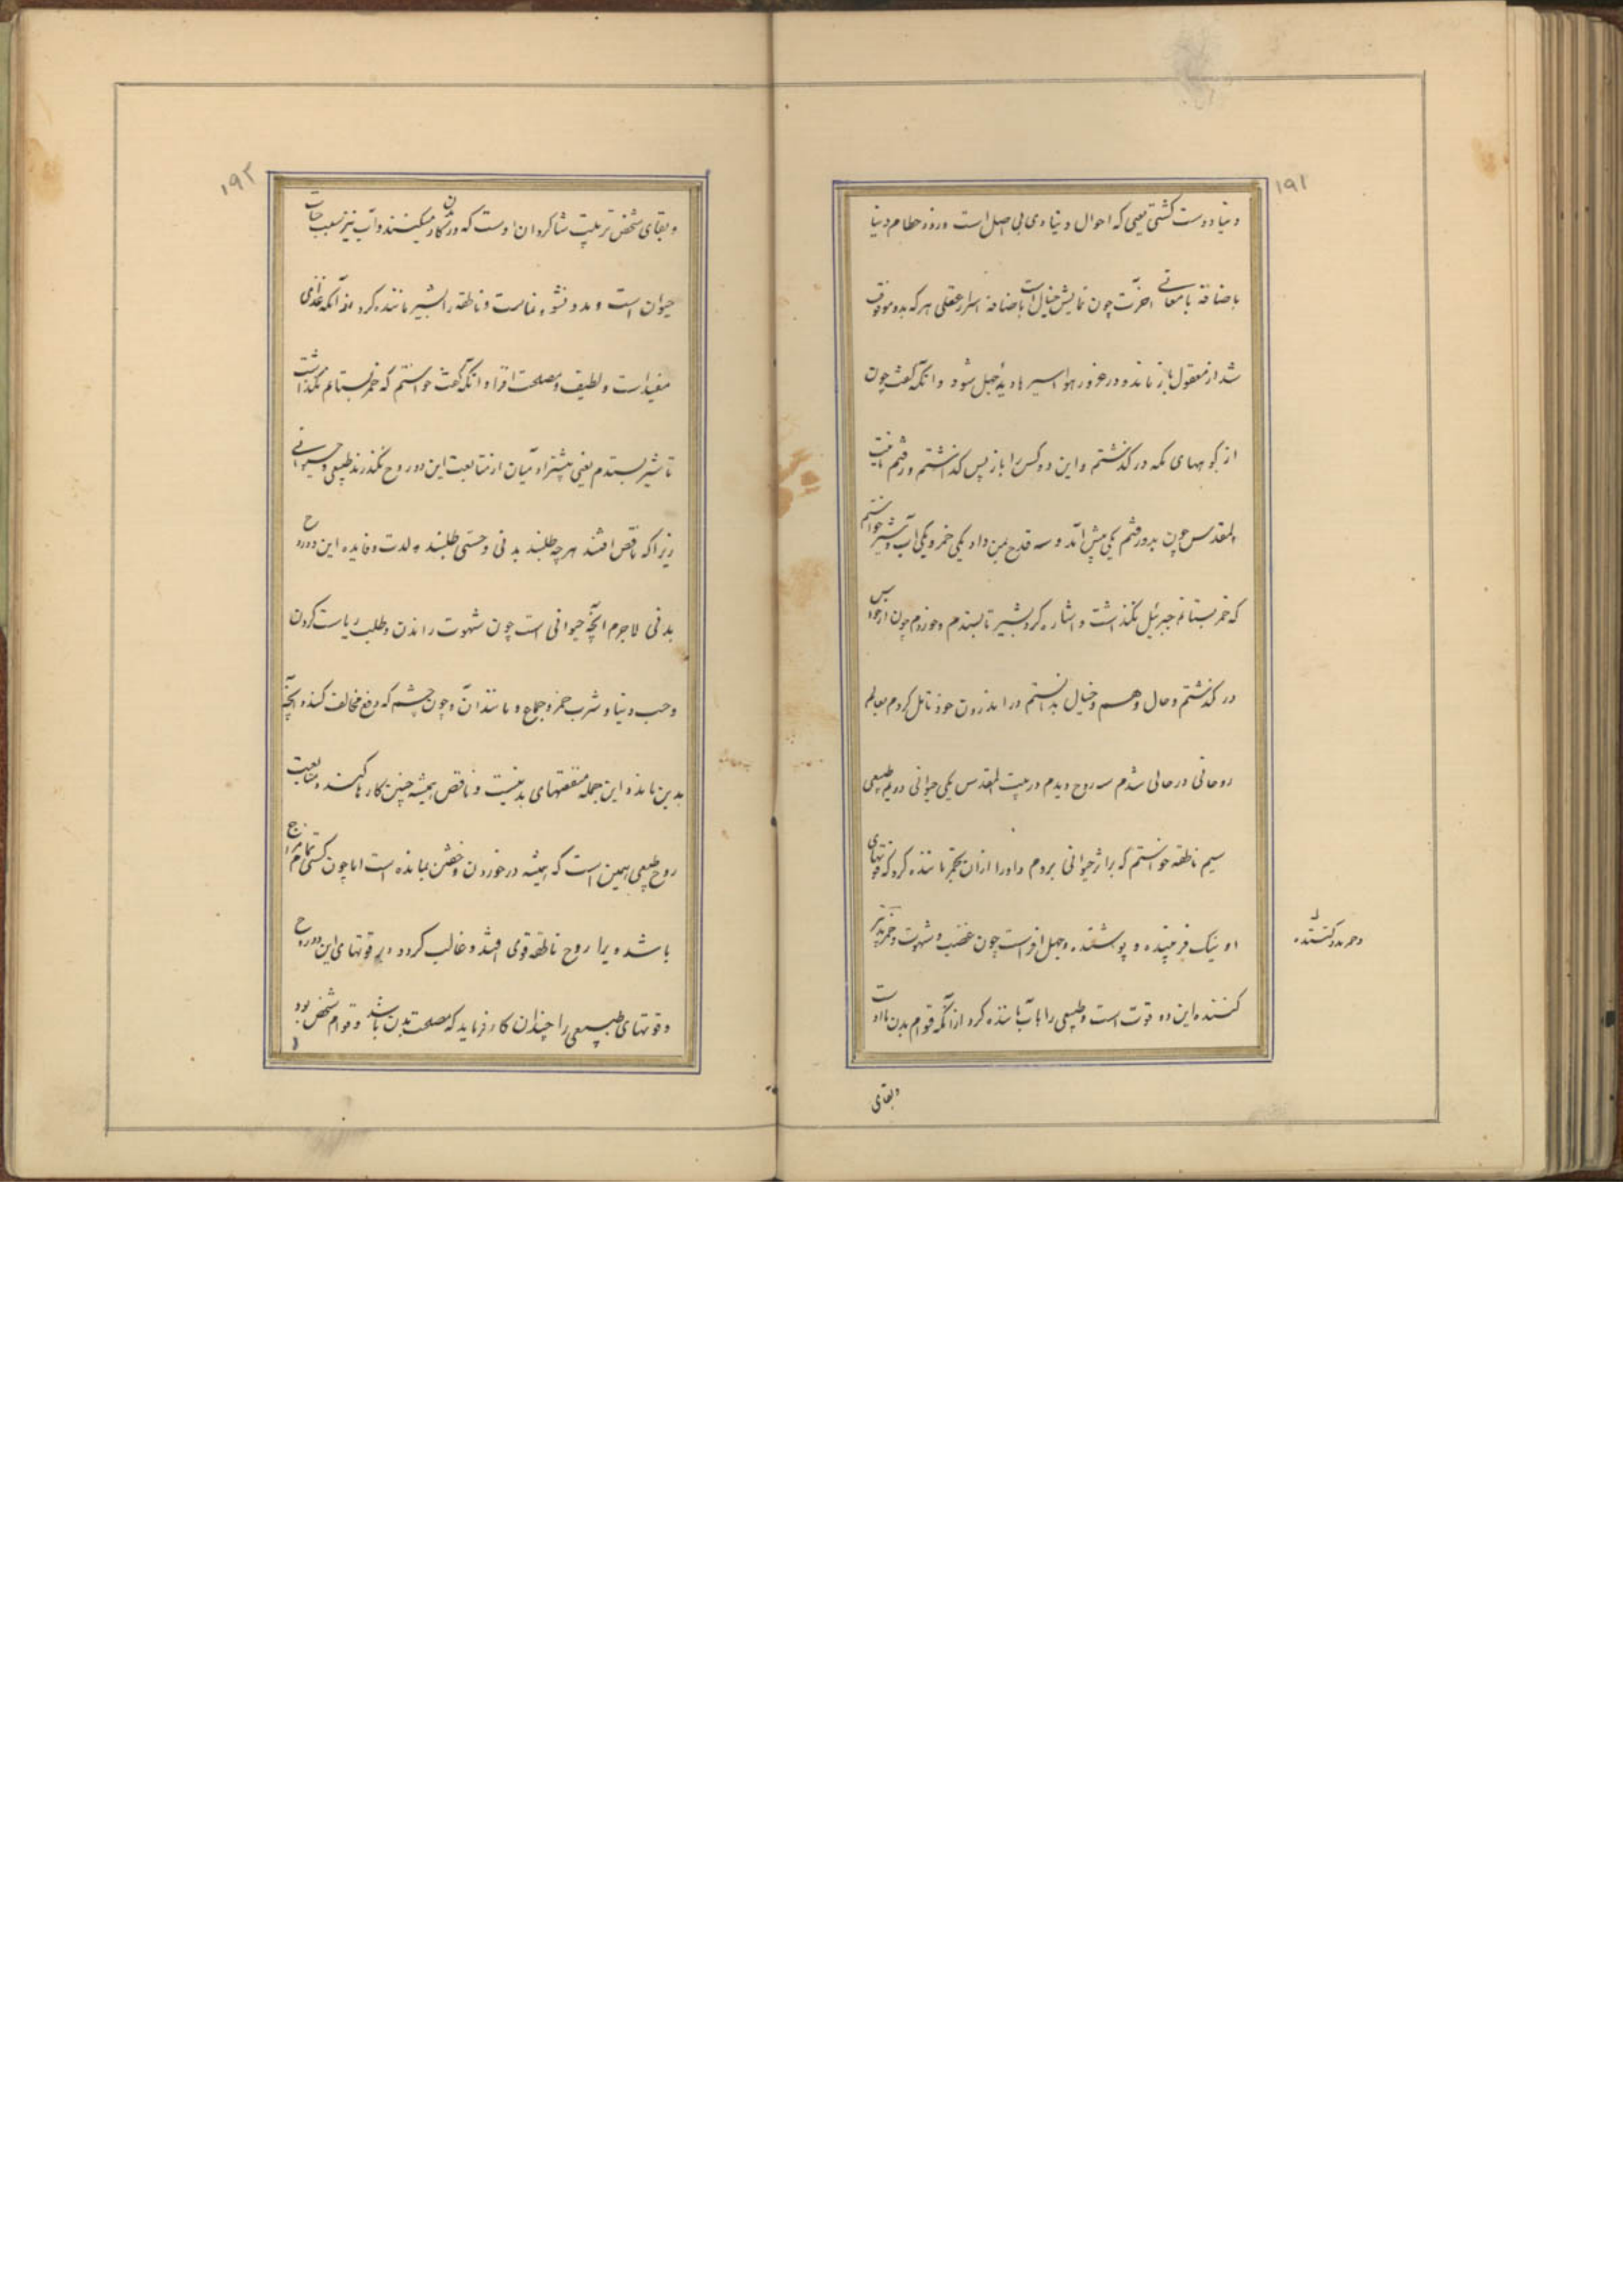 ۱۹۱
دنیا دوست گشتی یعنی که احوال دنیاوی بی اصل است و زود حطام دنیا
باضافة بامعانی آخرت چون نمایش خیال است باضافة اسرار عقلی هر که بدو موقوف
شد از معقول باز ماند و در غرور هوا اسیر هاویهٔ جهل شود و آنکه گفت چون
از کوههای مکه در گذشتم و این دو کس را باز پس گذاشتم و رفتم تا بیت
المقدس چون بدو رفتم یکی پیش آمد و سه قدح بمن داد یکی خمر و یکی آب و شیر خواستم
که خمر بستانم جبرئیل نگذاشت و اشاره کرد بشیر تا بستدم و خوردم چون از حواس
در گذشتم و حال وهم و خیال بدانستم و در اندرون خود تامل کردم بعالم
روحانی در حالی شدم سه روح دیدم در بیت المقدس یکی حیوانی دویم طبیعی
سیم ناطقه خواستم که بر اثر حیوانی بروم و او را از آن بخمر مانند کرد که قوتهای
او نیک فریبنده و پوشنده و جهل افزاست چون غضب و شهوت و خمر تیز
کننده این دو قوت است و طبیعی را بآب مانند کرد از آنکه قوام بدن با اوست
وبقای
۱۹۲
وبقای شخص تربیت شاگردان اوست که در بدن کار میکنند و آب نیز سبب حیات
حیوان است و مدد نشو و نماست و ناطقه را بشیر مانند کرد از آنکه غذای
مفید است و لطیف و مصلحت افزا و آنکه گفت خواستم که خمر بستانم نگذاشت
تا شیر بستدم یعنی بیشتر آدمیان از متابعت این دو روح نگذرند طبیعی و حیوانی
زیرا که ناقص افتند هر چه طلبند بدنی و حسی طلبند و لذت و فایده این دو روح
بدنی لاجرم آنچه حیوانی است چون شهوت راندن و طلب ریاست کردن
و حب دنیا و شرب خمر و جماع و مانند آن و چون خشم که دفع مخالف کند و آنچه
بدین ماند و این جمله منفعتهای بدنیست و ناقص همیشه چنین کارها کند و متابعت
روح طبیعی همین است که همیشه در خوردن و خفتن بمانده است اما چون کسی تمام مزاج
باشد ویرا روح ناطقه قوی افتد و غالب گردد و بر قوتهای این دو روح
و قوتهای طبیعی را چندان کار فرماید که مصلحت بدن باشد و قوام شخص بود